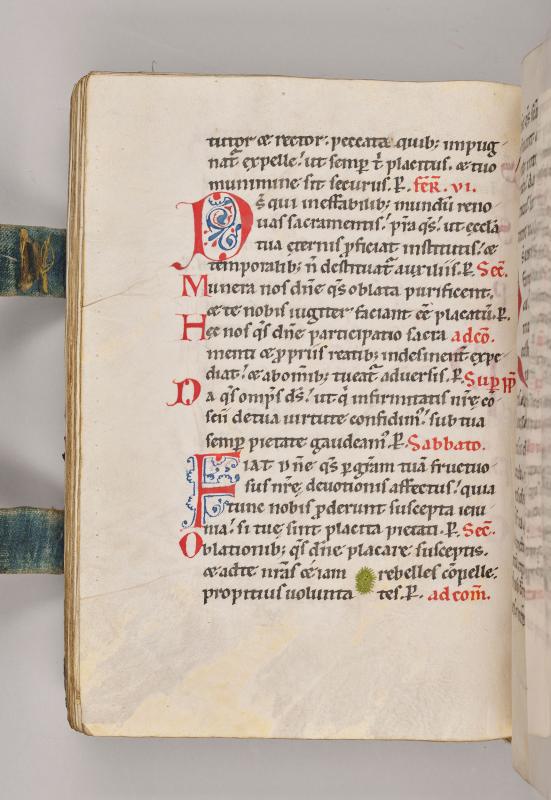 tutor & rector. peccata quib; impug-
nat̄ expelle. ut semp t̄ placitus. & tuo
munimine sit securus. P. FER̄. VI.
Ds̄ qui ineffabilib; mundū reno-
uas sacramentis. p̄ra q̄s. ut ęcclā
tua ęternis ꝓficiat institutis. &
temporalib; n̄ destituat᷑ auxiliis. P. Sec̄.
Munera nos dn̄e q̄s oblata purificent.
& te nobis iugiter faciant eē placatū. P.
Hęc nos q̄s dn̄e participatio sacra ad cō.
menti & ꝓpriis reatib; indesinent᷑ expe-
diat. & ab om̄ib; tueat᷑ aduersis. P. Sup pp̄
Da q̄s omp̄s ds̄. ut q̇ infirmitatis nrę cō-
scii de tua uirtute confidim᷒. sub tua
semp pietate gaudeam᷒. P. Sabbato.
Fiat dn̄e q̄s p gr̄am tuā fructuo-
sus nrę deuotionis affectus. quia
tunc nobis ꝓderunt suscepta ieiu-
nia. si tuę sint placita pietati. P. Sec̄.
Oblationib; q̄s dn̄e placare susceptis.
& ad te nr̄as etiam rebelles cōpelle.
propitius uoluntates. P. ad com̄.